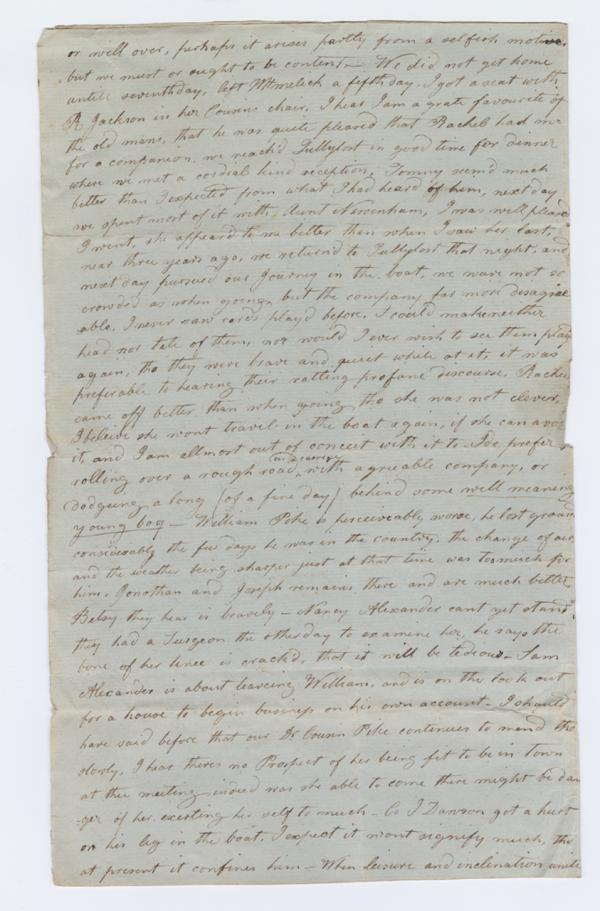 or well over, perhaps it arises partly from a selfish motive,
but we must or ought to be content,– We did not get home
untill seventhday, left Mtmelick a fifthday. I got a seat with
R Jackson in her Cousins chair, I hear I am a grate favourite of
the old mans, that he was quite pleased that Rachel had me
for a companion. we reach'd Tullylost in good time for dinner
where we met a cordial kind reception, Tommy seem'd much
better than I expected from what I had heard of him, next day
we spent most of it with Aunt Newenham, I was well pleas'd
I went, she appeard to me better than when I saw her last,
near three years ago, we return'd to Tullylost that night, and
next day pursued our Journey in the boat, we ware not so
crowded as when going, but the company far more disagree
able, I never saw cards play'd before, I could make neither
head nor tale of them, nor would I ever wish to see them play
again, tho they were brave and quiet while at it, it was
preferable to hearing their ratling profane discourse, Rachel
came off better than when going tho she was not clever,
I believe she wont travel in the boat again, if she can avo
it, and I am allmost out of conceit with it to. I'de prefer
rolling over a rough road, with agreable company, or
in a carriage
dodgeing a long (of a fine day) behind some well meaning
young boy – William Pike is perceiveably worse, he lost ground
considerably the few days he was in the country, the change of air
and the weather being sharper just at that time was too much for
him. Jonathan and Joseph remains there and are much better,
Betsy they hear is bravely – Nancy Alexander cant yet stand
they had a Surgeon the other day to examine her, he says the
bone of her knee is crack'd, that it will be tedious – Sam
Alexander is about leaveing William, and is on the look out
for a house to begin business on his own account – I should
have said before that our Dr Cousin Pike continues to mend tho
slowly, I hear theres no Prospect of her being fit to be in Town
at the meeting indeed was she able to come there might be dan
ger of her exerting her self to much – Co I Dawson got a hurt
on his leg in the boat, I expect it wont signify much, tho
at present it confines him – When leisure and inclination unite